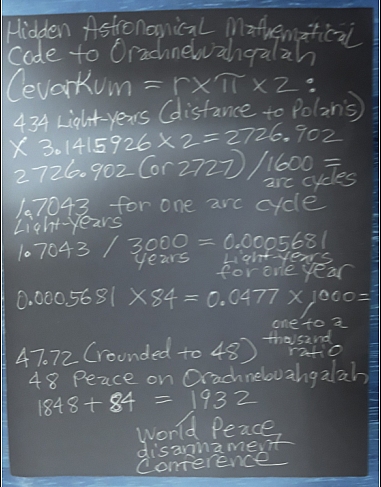 Hidden Astronomical Mathematical
Code to Orachnebuahgalah
Cevorkum = r x π x 2 :
434 Light-years (distance to Polaris)
x 3.1415926 x 2 = 2726.902
2726.902 (or 2727) / 1600 =
arc cycles
1.7043 for one arc cycle
Light-years
1.7043 / 3000 = 0.0005681
years Light-years
for one year
0.0005681 x 84 = 0.0477 x 1000 =
one to a
thousand
ratio
47.72 (rounded to 48)
48 Peace on Orachnebuahgalah
1848 + 84 = 1932
World Peace
disarmament
Conference